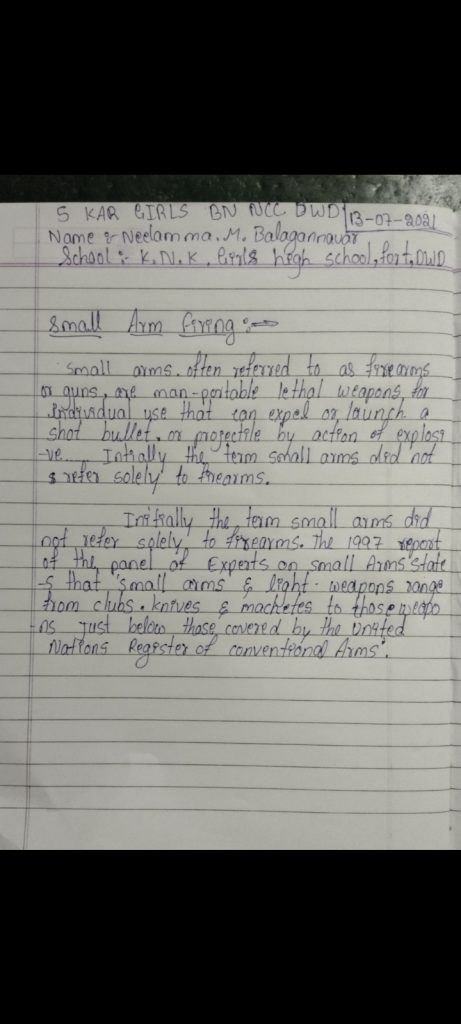 5 KAR GIRLS BN NCC DWD 13-07-2021
Name :- Neelamma. M. Balagannavar
School :- K. N. K. Girls high school, fort, DWD
Small Arm firing :-
Small arms. often referred to as firearms
or guns, are man-portable lethal weapons, for
individual use that can expel or launch a
shot bullet. or projectile by action of explosi
-ve.... Intially the term small arms did not
refer solely to firearms.
Initially the, term small arms did
not refer solely to firearms. The 1997 report
of the panel of Experts on small Arms'state
-s that 'small arms & light - weapons range
from clubs. knives & machetes to those weapo
-ns just below those covered by the United
Nations Register of conventional Arms'.